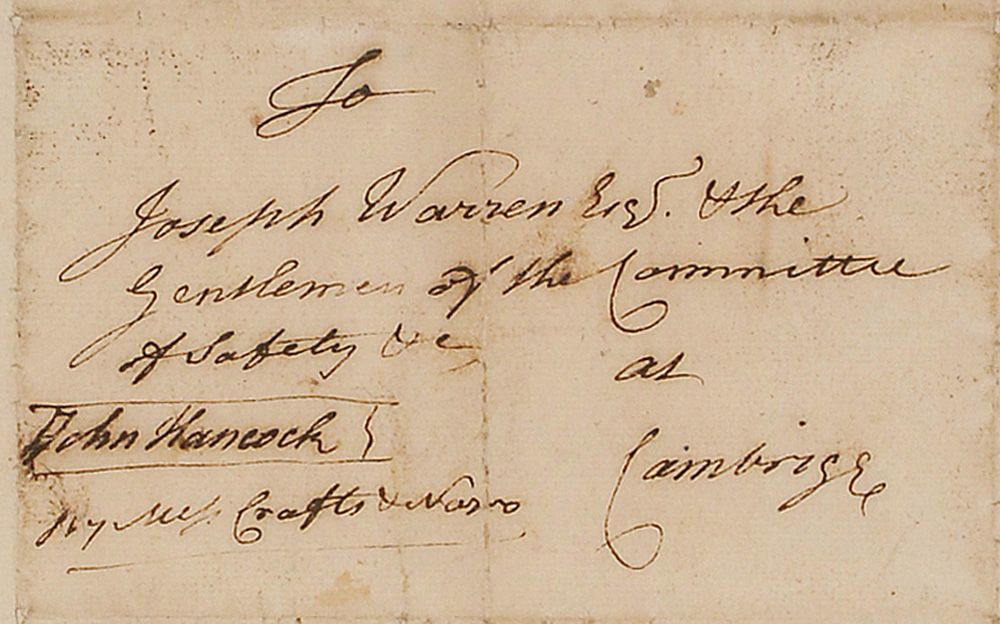 To
Joseph Warren Esqr. & the
Gentlemen of the Committee
of Safety &c
at
John Hancock
Cambrigg
by Mess Crafts &